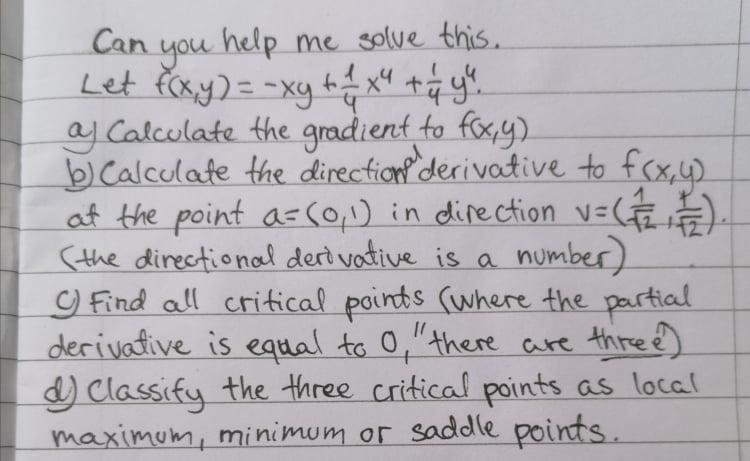 Can you help me solve this.
Let f(x,y) = -xy + 1/4 x⁴ + 1/4 y⁴.
a) Calculate the gradient to f(x,y)
b) Calculate the directional derivative to f(x,y)
at the point a=(0,1) in direction v=(1/√2, 1/√2).
(the directional derivative is a number)
c) Find all critical points (where the partial
derivative is equal to 0, "there are three")
d) Classify the three critical points as local
maximum, minimum or saddle points.